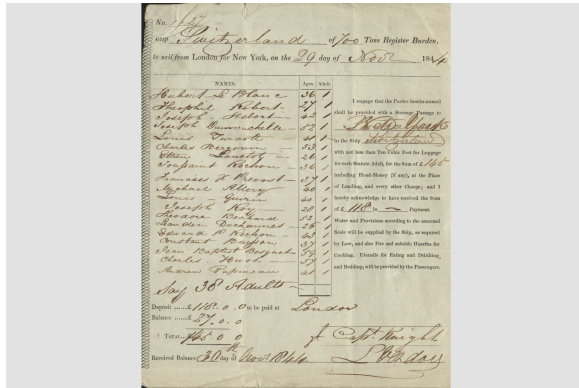 No. 127
SHIP Switzerland of 700 Tons Register Burden,
to sail from London for New York, on the 29 day of Nov 1844
NAMES. Ages. Adult.
Hubert 36 1
Theophil Robert 27 1
Joseph Hebert 42 1
Joseph 52 1
Louis
Charles Bergevin 53
Etien Langlois 26 1
Toussaint Rochon 36
Francois X Prevost 37 1
Michael Allery 40 1
Louis Guerin
Joseph Roy 20 1
Theodore Bechard 52
Leandre Ducharme 26 1
Edward P Rochon 43 1
Constant Buisson 37
Jean Baptist 39
Charles Huot 57 1
Andrew Papineau 41 1
Say 38 Adults
I engage that the Parties herein named
shall be provided with a Steerage Passage to
New York
in the Ship Switzerland
with not less than Ten Cubic Feet for Luggage
for each Statute Adult, for the Sum of £145
including Head-Money (if any), at the Place
of Landing, and every other Charge; and I
hereby acknowledge to have received the Sum
of £118 in — Payment.
Water and Provisions according to the annexed
Scale will be supplied by the Ship, as required
by Law, and also Fire and suitable Hearths for
Cooking. Utensils for Eating and Drinking,
and Bedding, will be provided by the Passengers.
Deposit £118.0.0 to be paid at London
Balance £27.0.0
Total £145.0 0
Capt. Knight
Received Balance 30th day of Nov 1844